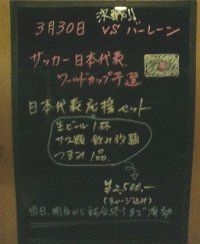 決戦!!
3月30日 VS バーレーン
サッカー日本代表
ワールドカップ予選
日本代表応援セット
生ビール 1杯
サワ類 飲み放題
つまみ 1品
¥2,500.-
(チャージ込み)
当日、開店から試合終了まで有効